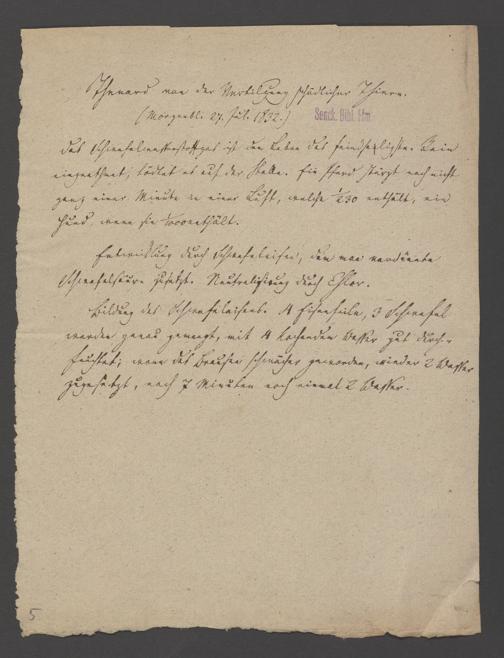 Thenard von der Vertilgung schädlicher Thiere.
(Morgenbl. 27. Jul. 1832.)
Senck. Bibl. Ffm
Das Schwefelwasserstoffgas ist dem Leben das feindseligste. Rein
eingeathmet, tödtet es auf der Stelle. Ein Pferd stürzt nach nicht
ganz einer Minute in einer Luft, welche 1/250 enthält, ein
Hund, wenn sie 1/1000 enthält.
Entwicklung durch Schwefeleisen, dem man verdünnte
Schwefelsäure zusetzt. Neutralisirung durch Chlor.
Bildung des Schwefeleisens. 4 Eisenfeile, 3 Schwefel
werden genau gemengt, mit 4 kochendem Wasser gut durch-
feuchtet; wenn das Brausen schwächer geworden, wieder 2 Wasser
zugesetzt, nach 7 Minuten noch einmal 2 Wasser.
5